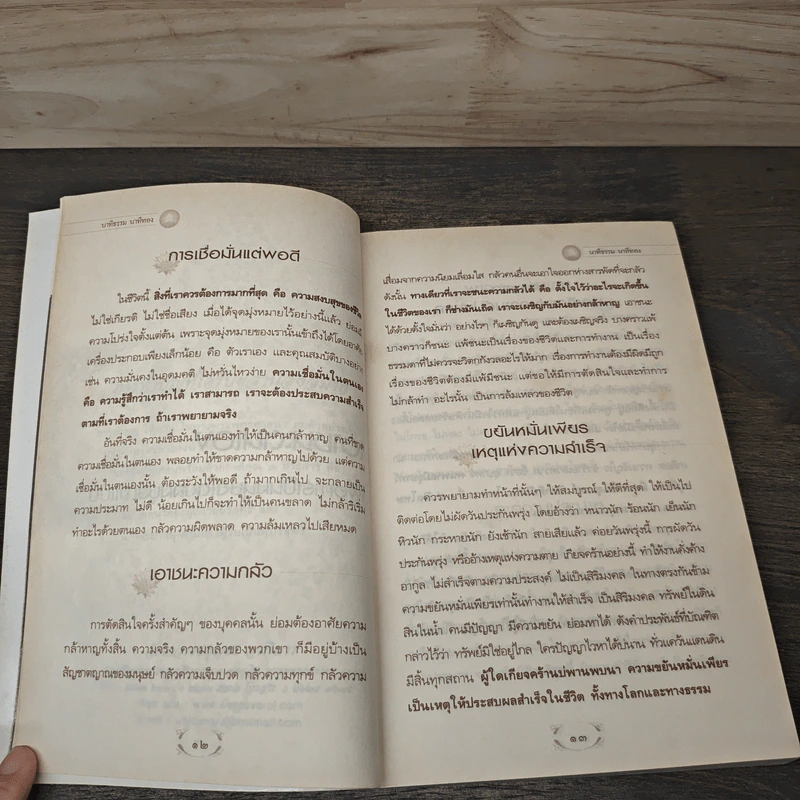 นาทีธรรม นาทีทอง
การเชื่อมั่นแต่พอดี
ในชีวิตนี้ สิ่งที่เราควรต้องการมากที่สุด คือ ความสงบสุขของชีวิต
ไม่ใช่เกียรติ ไม่ใช่ชื่อเสียง เมื่อได้จุดมุ่งหมายไว้อย่างนี้แล้ว ย่อมมี
ความโปร่งใจตั้งแต่ต้น เพราะจุดมุ่งหมายของเรานั้นเข้าถึงได้โดยอาศัย
เครื่องประกอบเพียงเล็กน้อย คือ ตัวเราเอง และคุณสมบัติบางอย่าง
เช่น ความมั่นคงในอุดมคติ ไม่หวั่นไหวง่าย ความเชื่อมั่นในตนเอง
คือ ความรู้สึกว่าเราทำได้ เราสามารถ เราจะต้องประสบความสำเร็จ
ตามที่เราต้องการ ถ้าเราพยายามจริง
อันที่จริง ความเชื่อมั่นในตนเองทำให้เป็นคนกล้าหาญ คนที่ขาด
ความเชื่อมั่นในตนเอง พลอยทำให้ขาดความกล้าหาญไปด้วย แต่ความ
เชื่อมั่นในตนเองนั้น ต้องระวังให้พอดี ถ้ามากเกินไป จะกลายเป็น
ความประมาท ไม่ดี น้อยเกินไปก็จะทำให้เป็นคนขลาด ไม่กล้าริเริ่ม
ทำอะไรด้วยตนเอง กลัวความผิดพลาด ความล้มเหลวไปเสียหมด
เอาชนะความกลัว
การตัดสินใจครั้งสำคัญๆ ของบุคคลนั้น ย่อมต้องอาศัยความ
กล้าหาญทั้งสิ้น ความจริง ความกลัวของพวกเขา ก็มีอยู่บ้างเป็น
สัญชาตญาณของมนุษย์ กลัวความเจ็บปวด กลัวความทุกข์ กลัวความ
๑๒
นาทีธรรม นาทีทอง
เสื่อมจากความนิยมเลื่อมใส กลัวคนอื่นจะเอาใจออกห่างสารพัดที่จะกลัว
ดังนั้น ทางเดียวที่เราจะชนะความกลัวได้ คือ ตั้งใจไว้ว่าอะไรจะเกิดขึ้น
ในชีวิตของเรา ก็ช่างมันเถิด เราจะเผชิญกับมันอย่างกล้าหาญ เอาชนะ
ได้ด้วยตั้งใจมั่นว่า อย่างไรๆ ก็เผชิญกันดู และต้องเผชิญจริง บางคราวแพ้
บางคราวก็ชนะ แพ้ชนะเป็นเรื่องของชีวิตและการทำงาน เป็นเรื่อง
ธรรมดาที่ไม่ควรจะวิตกกังวลอะไรให้มาก เรื่องการทำงานต้องมีผิดมีถูก
เรื่องของชีวิตต้องมีแพ้มีชนะ แต่ขอให้มีการตัดสินใจและทำการ
ไม่กล้าทำ อะไรนั้น เป็นการล้มเหลวของชีวิต
ขยันหมั่นเพียร
เหตุแห่งความสำเร็จ
ควรพยายามทำหน้าที่นั้นๆ ให้สมบูรณ์ ให้ดีที่สุด ให้เป็นไป
ติดต่อโดยไม่ผัดวันประกันพรุ่ง โดยอ้างว่า หนาวนัก ร้อนนัก เย็นนัก
หิวนัก กระหายนัก ยังเช้านัก สายเสียแล้ว ค่อยวันพรุ่งนี้ การผัดวัน
ประกันพรุ่ง หรืออ้างเหตุแห่งความตาย เกียจคร้านอย่างนี้ ทำให้งานคั่งค้าง
อากูล ไม่สำเร็จตามความประสงค์ ไม่เป็นสิริมงคล ในทางตรงกันข้าม
ความขยันหมั่นเพียรเท่านั้นทำงานให้สำเร็จ เป็นสิริมงคล ทรัพย์ในดิน
สินในน้ำ คนมีปัญญา มีความขยัน ย่อมหาได้ ดังคำประพันธ์ที่บัณฑิต
กล่าวไว้ว่า ทรัพย์มิใช่อยู่ไกล ใครปัญญาไวหาได้บ่นาน ทั่วแคว้นแดนดิน
มีสิ้นทุกสถาน ผู้ใดเกียจคร้านบ่พานพบนา ความขยันหมั่นเพียร
เป็นเหตุให้ประสบผลสำเร็จในชีวิต ทั้งทางโลกและทางธรรม
๑๓